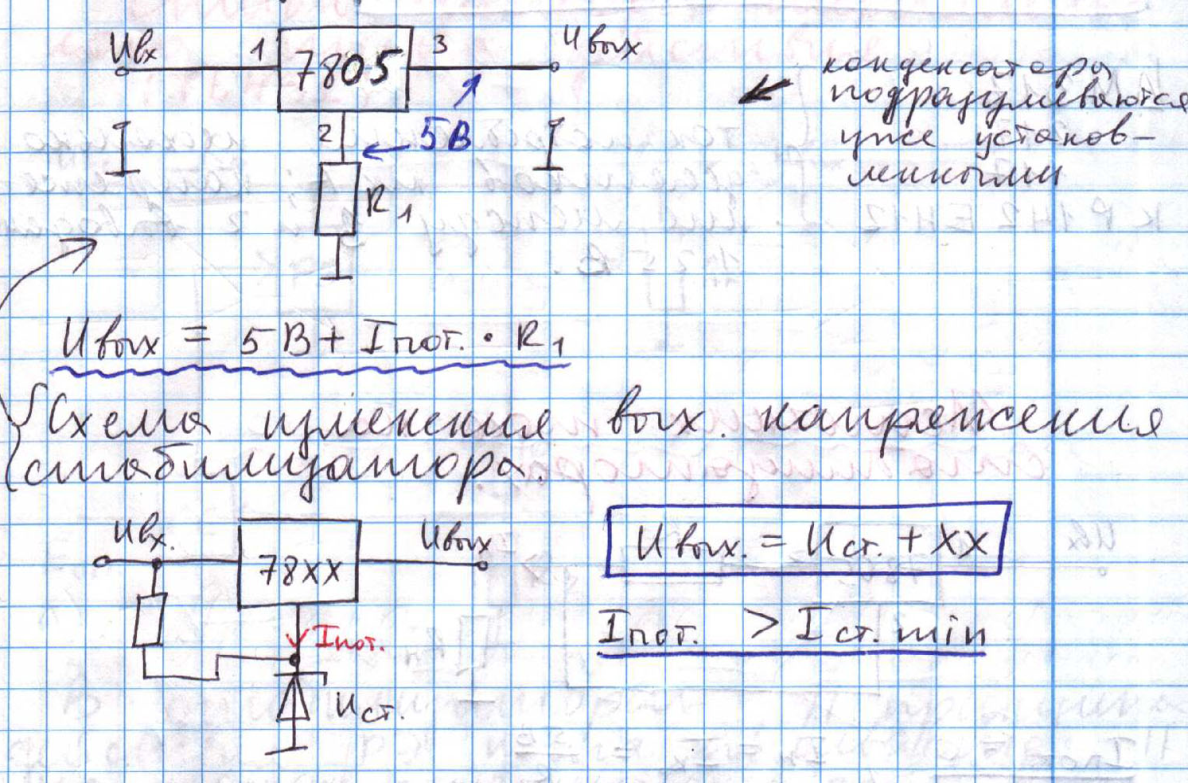 Uвх 1 7805 3 Uвых
2 5В
R1
конденсаторы
подразумеваются
уже установ-
ленными
Uвых = 5В + Iпот. · R1
Схема изменения вых. напряжения
стабилизатора.
Uвх. 78XX Uвых
Iпот.
Uст.
Uвых. = Uст. + XX
Iпот. > Iст. min